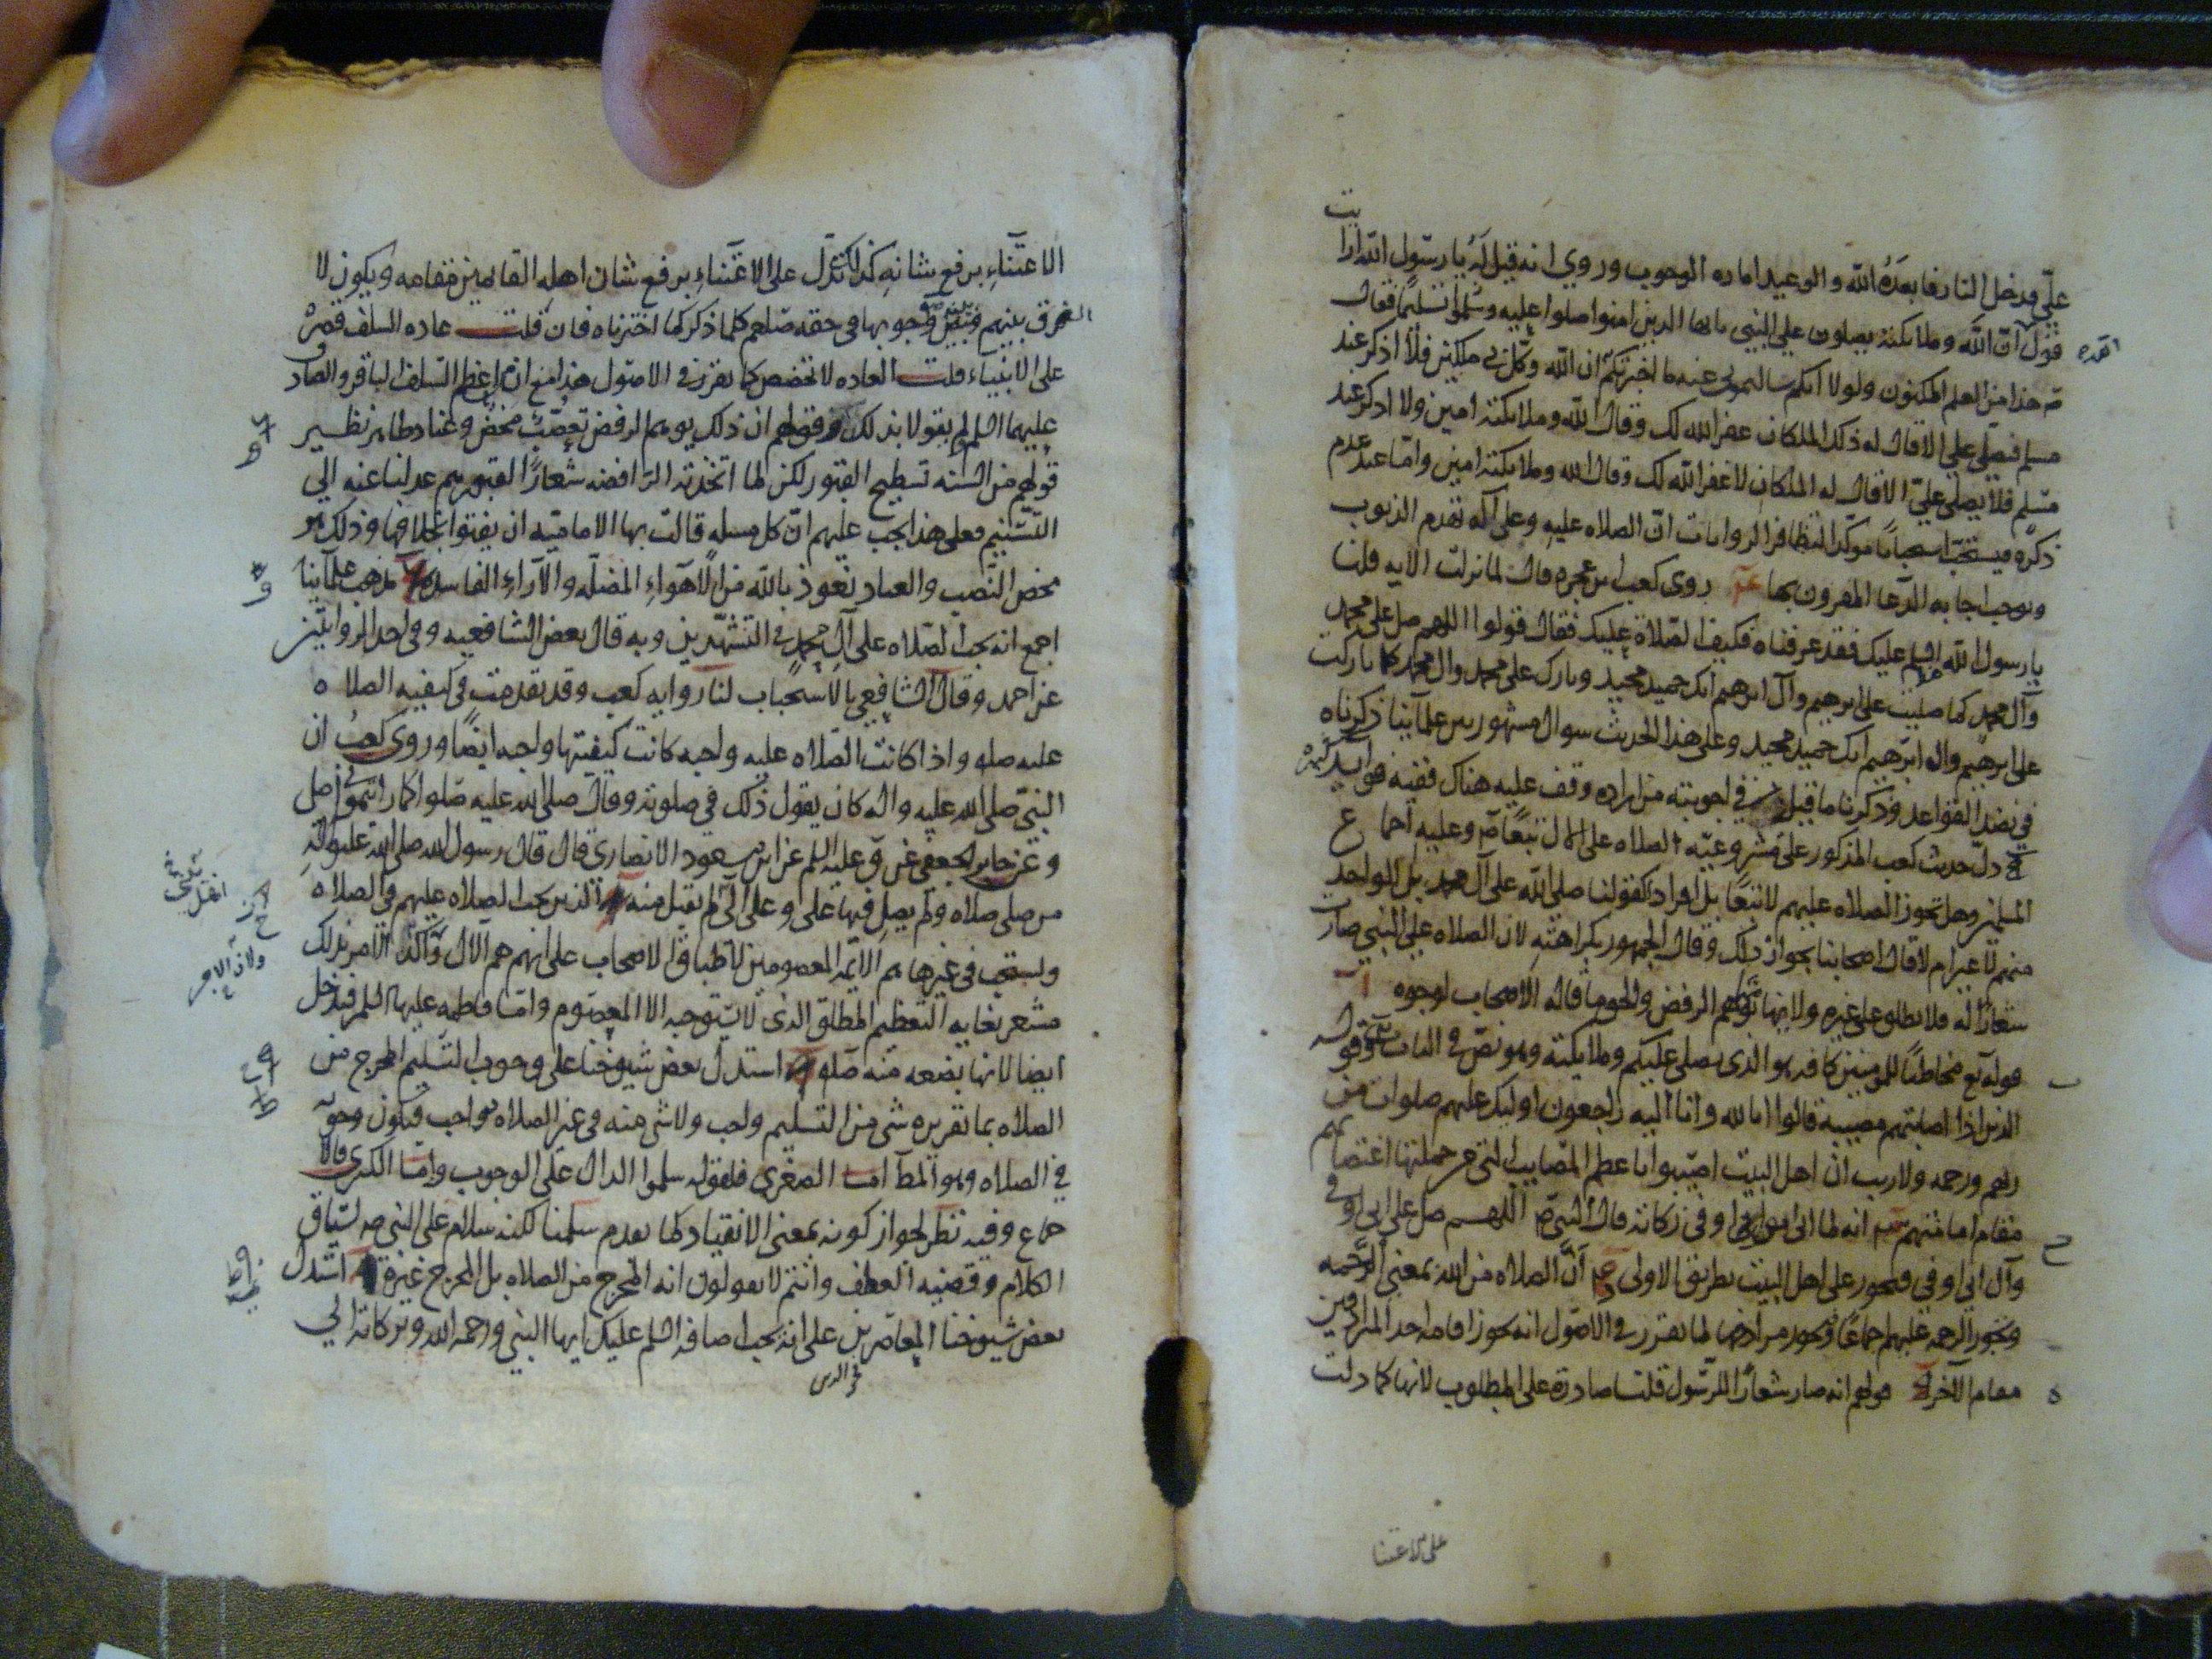 علي فدخل النار فابعده الله والوعيد اماره الوجوب وروي انه قيل له يا رسول الله ارايت
قول ان الله وملائكته يصلون على النبي يا ايها الذين امنوا صلوا عليه وسلموا تسليما فقال
هذا من العلم المكنون ولولا انكم سالتموني عنه ما اخبرتكم ان الله وكل بي ملكين فلا اذكر عند
مسلم فيصلي علي الا قال له ذلك الملكان غفر الله لك وقال الله وملائكته امين ولا اذكر عند
مسلم فلا يصلي علي الا قال له الملكان لا غفر الله لك وقال الله وملائكته امين واما عند عدم
ذكره فيستحب استحبابا موكدا لتظافر الروايات ان الصلاه عليه وعلى آله تهدم الذنوب
وتوجب اجابه الدعا المقرون بها روى كعب بن عجره قال لما نزلت الايه قلنا
يا رسول الله السلم عليك فقد عرفناه فكيف الصلاة عليك فقال قولوا اللهم صل على محمد
وآل محمد كما صليت على ابرهيم وآل ابرهيم انك حميد مجيد وبارك على محمد وال محمد كما باركت
على ابرهيم وال ابرهيم انك حميد مجيد وعلى هذا الحديث سوال مشهور بين علمآئنا ذكرناه
في نضد القواعد وذكرنا ما قيل في اجوبته من اراده وقف عليه هناك ففيه فوايد كثيرة
دل حديث كعب المذكور على مشروعيه الصلاه على الال تبعا له وعليه اجماع
المسلمين وهل تجوز الصلاه عليهم لا تبعا بل افرادا كقولنا صلى الله على آل محمد بل الواحد
منهم لا غير ام لا قال اصحابنا بجواز ذلك وقال الجمهور بكراهته لان الصلاه على النبي صارت
شعارا له فلا تطلق على غيره ولايهامها الرفض والحق ما قاله الاصحاب لوجوه ا
قوله تع مخاطبا للمومنين كافه هو الذي يصلي عليكم وملايكته وهو نص في الباب ب قوله
الذين اذا اصابتهم مصيبة قالوا انا لله وانا اليه راجعون اوليك عليهم صلوات من
ربهم ورحمه ولا ريب ان اهل البيت اصيبوا باعظم المصايب التي من جملتها اغتصابهم
مقام امامتهم ج انه لما اتى ابو اوفى بزكاته قال النبي ص اللهم صل على ابي اوفى
وآل ابي اوفى فيجوز على اهل البيت بطريق الاولى د ان الصلاه من الله بمعنى الرحمه
وتجوز الرحمه عليهم اجماعا فيجوز مرادفها لما تقرر في الاصول انه يجوز اقامه احد المترادفين
مقام الآخر ه قولهم انه صار شعارا للرسول قلت مصادرة على المطلوب لانها كما دلت
على الاعتنا
الاعتنآء برفع شانه كذا تدل على الاعتنآء برفع شان اهله القايمين مقامه ويكون
الفرق بينهم وبينه وجوبها في حقه صلعم كلما ذكر كما اخترناه فان قلت عاده السلف قصره
على الانبياء قلت العاده لا تخصص كما تقرر في الاصول هذا مع ان من اعظم السلف الباقر والصادق
عليهما السلم ولم يقولا بذلك وقولهم ان ذلك يوهم الرفض تعصب محض وعناد ظاهر نظير
قولهم من السنه تسطيح القبور لكن لما اتخذته الرافضه شعارا لقبورهم عدلنا عنه الى
التسنيم فعلى هذا يجب عليهم ان كل مسله قالت بها الاماميه ان يفتوا بخلافها وذلك هو
محض التعصب والعناد نعوذ بالله من الاهوآء المضله والآراء الفاسده مذهب علمآينا
اجمع انه يجب الصلاه على آل محمد في التشهدين وبه قال بعض الشافعيه وفي احد الروايتين
عن احمد وقال الشافعي بالاستحباب لنا روايه كعب وقد تقدمت في كيفيه الصلاه
عليه صله واذا كانت الصلاه عليه واجبه كانت كيفيتها واجبه ايضا وروى كعب ان
النبي صلى الله عليه واله كان يقول ذلك في صلوته وقال صلى الله عليه صلوا كما رايتموني اصلي
وعن جابر الجعفي عن ق عليه السلم عن ابن مسعود الانصاري قال قال رسول الله صلى الله عليه وآله
من صلى صلاه ولم يصل فيها علي وعلى آلي لم يقبل منه الذين يجب الصلاه عليهم في الصلاه
ويستحب في غيرها هم الايمه المعصومين لاطباق الاصحاب على انهم هم الآل ولان الامر بذلك
مشعر بغايه التعظيم المطلق الذي لا يستوجبه الا المعصوم واما فاطمه عليها السلم فتدخل
ايضا لانها بضعه منه صلوه استدل بعض شيوخنا على وجوب التسليم المخرج من
الصلاه بما تقريره شي من التسليم واجب ولا شي منه في غير الصلاه بواجب فيكون وجوبه
في الصلاه وهو المط اما الصغرى فلقوله سلموا الدال على الوجوب واما الكبرى فللا
جماع وفيه نظر لجواز كونه بمعنى الانقياد كما تقدم سلمنا لكنه سلام على النبي ص لسياق
الكلام وقضيه العطف وانتم لا تقولون انه المخرج من الصلاه بل المخرج غيره استدل
بعض شيوخنا المعاصرين على انه يجب اضافه السلم عليك ايها النبي ورحمه الله وبركاته الى